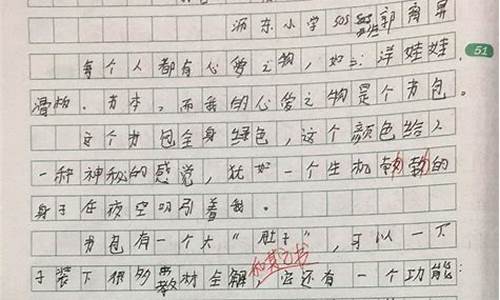 东小学 505 郭
51
每个人都有心爱之物,如:洋娃娃、
滑板、书本,而我的心爱之物是个书包。
这个书包全身绿色,这个颜色给人
一种神秘的感觉,犹如一个生机勃勃的
身于在夜空吸引着我。
书包有一个大“肚子”,可以一下
子装下很多教材全解和其它书它还有一个功能